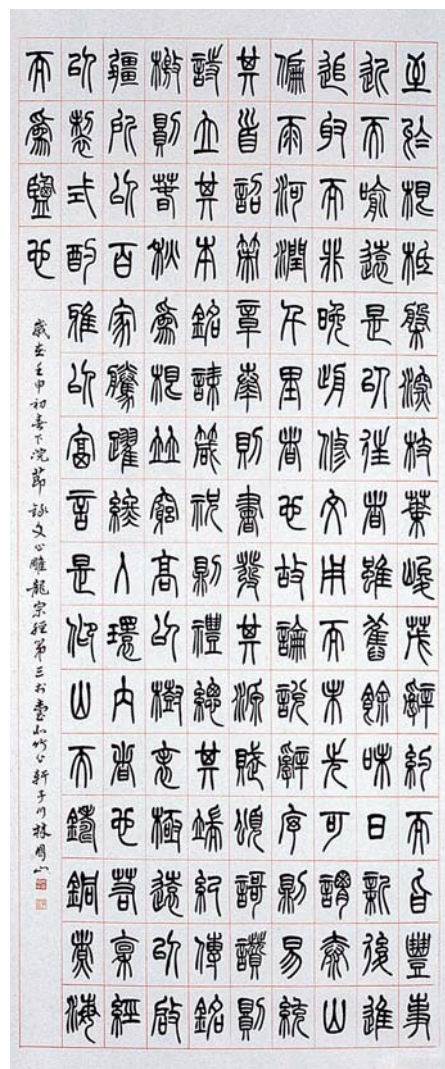 至於根柢槃深枝葉峻茂辭約而旨豐事
近而喻遠是以往者雖舊餘味日新後進
追取而非晚前修文用而未先可謂泰山
偏雨河潤千里者也故論說辭序則易統
其首詔策章奏則書發其源賦頌歌讚則
詩立其本銘誄箴祝則禮總其端紀傳銘
檄則春秋為根並窮高以樹表極遠以啟
疆所以百家騰躍終入環內者也若稟經
以製式酌雅以富言是仰山而鑄銅煮海
而為鹽也
歲在壬申初春下浣節錄文心雕龍宗經第三於臺北竹軒子川林